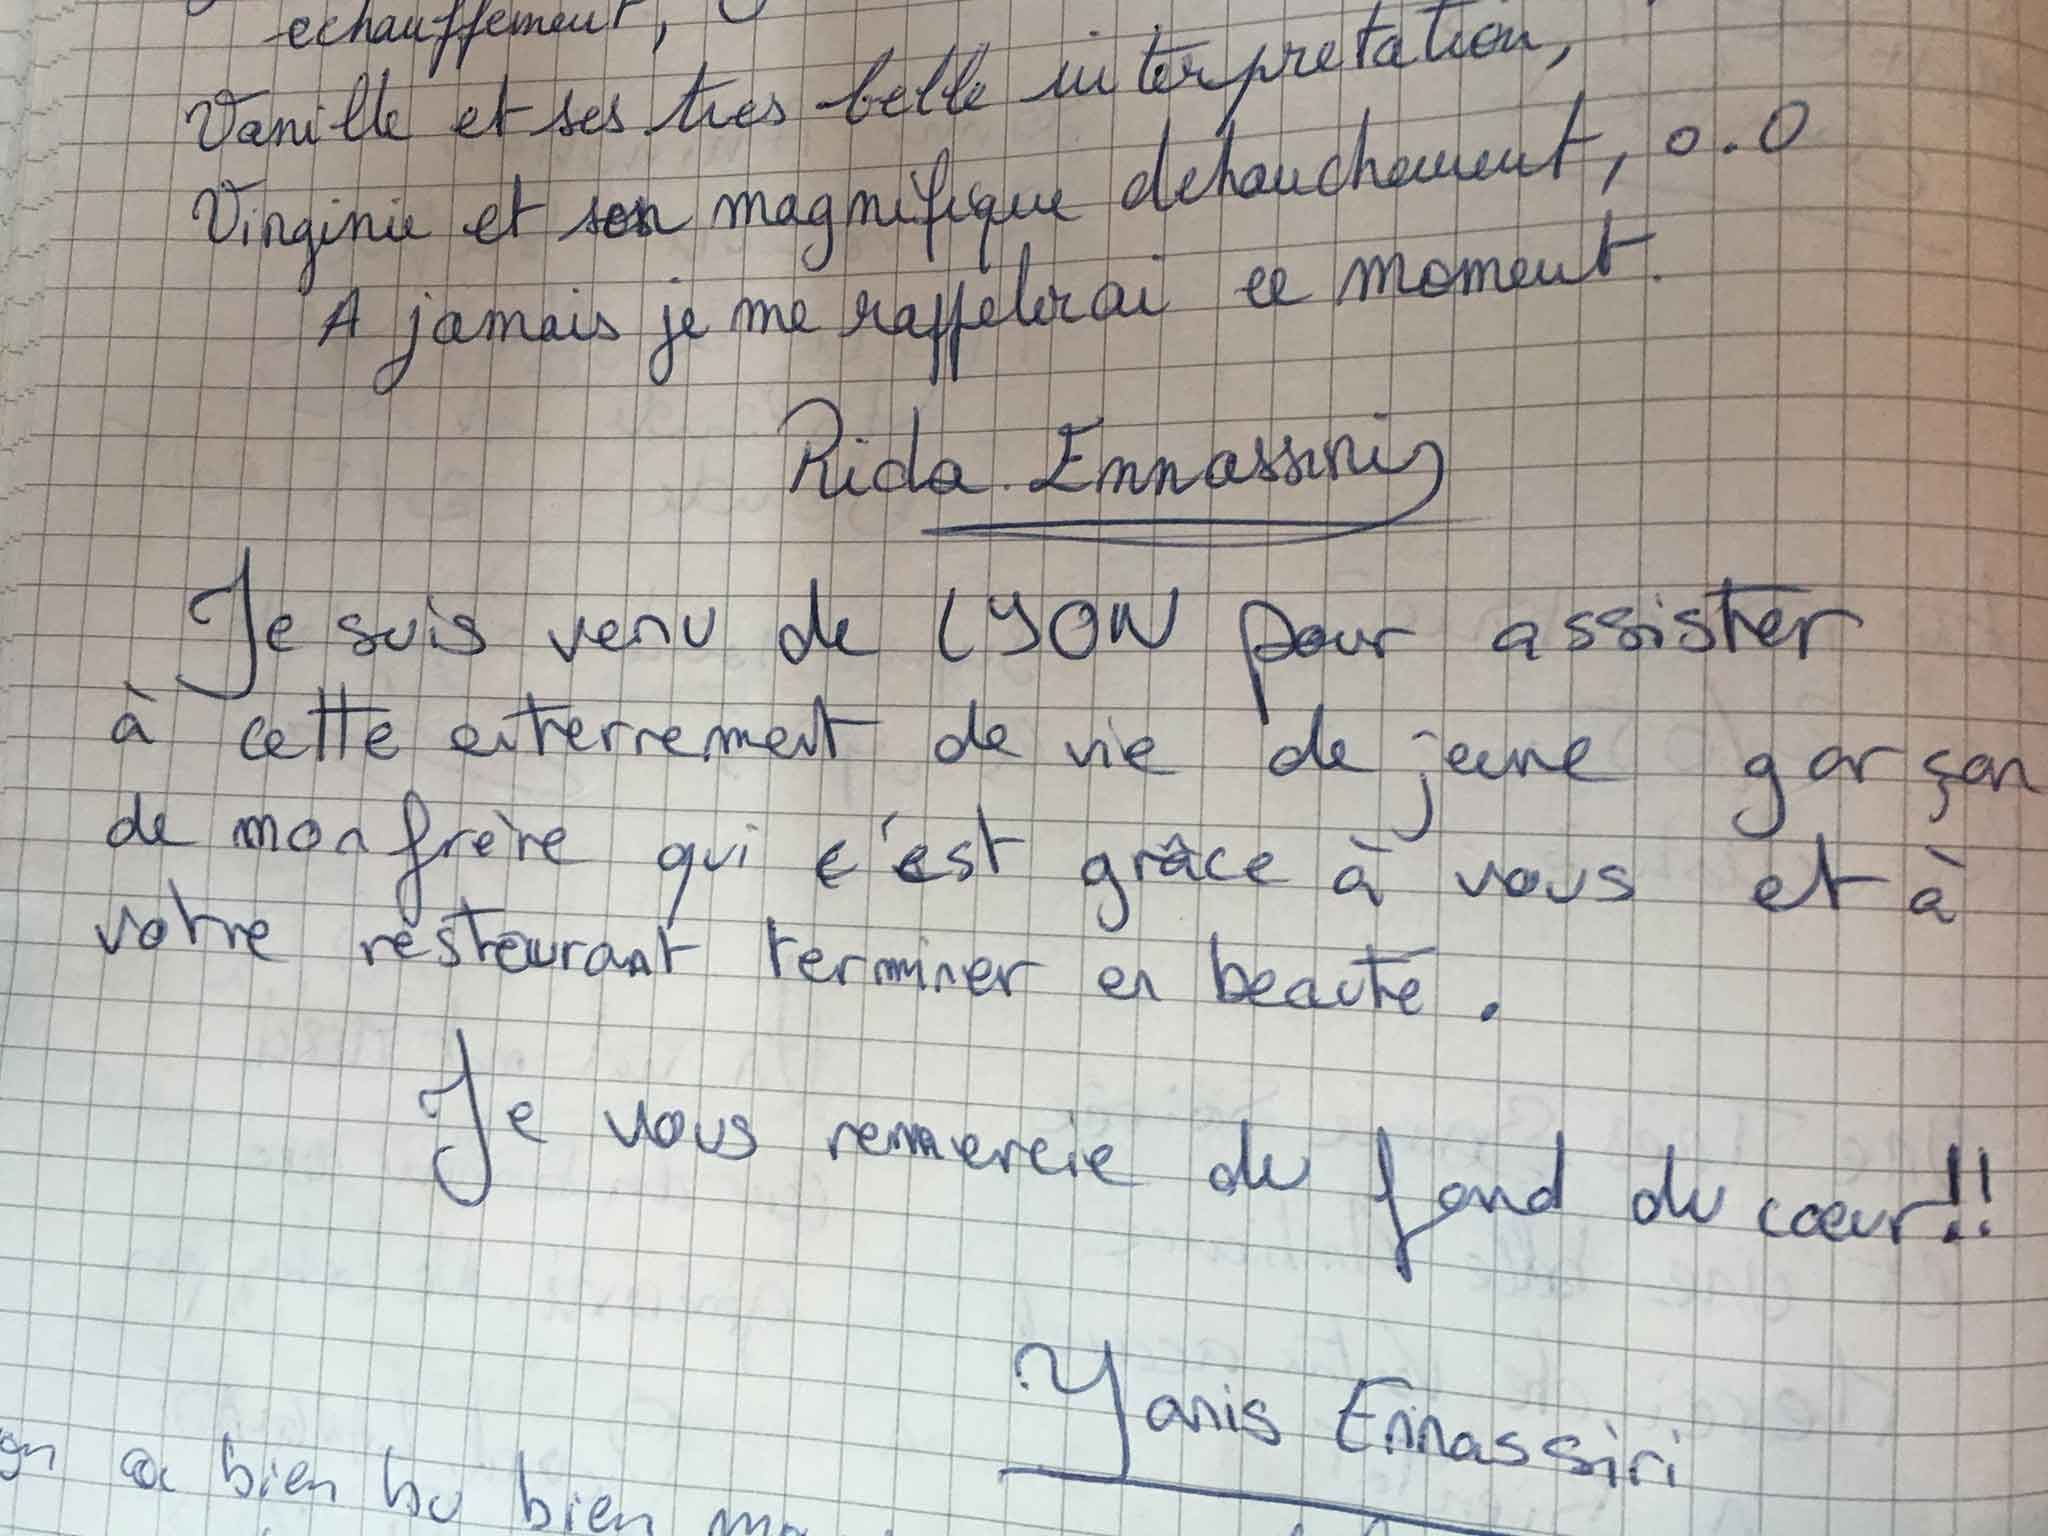 echauffement,
Vanille et ses tres belle interpretation,
Virginie et son magnifique dehanchement, o.O
A jamais je me rappelerai ce moment.
Rida Ennassiri
Je suis venu de LYON pour assister
à cette enterrement de vie de jeune garçon
de mon frère qui c'est grâce à vous et à
votre restaurant terminer en beauté.
Je vous remercie du fond du cœur!!
Yanis Ennassiri
on a bien bu bien